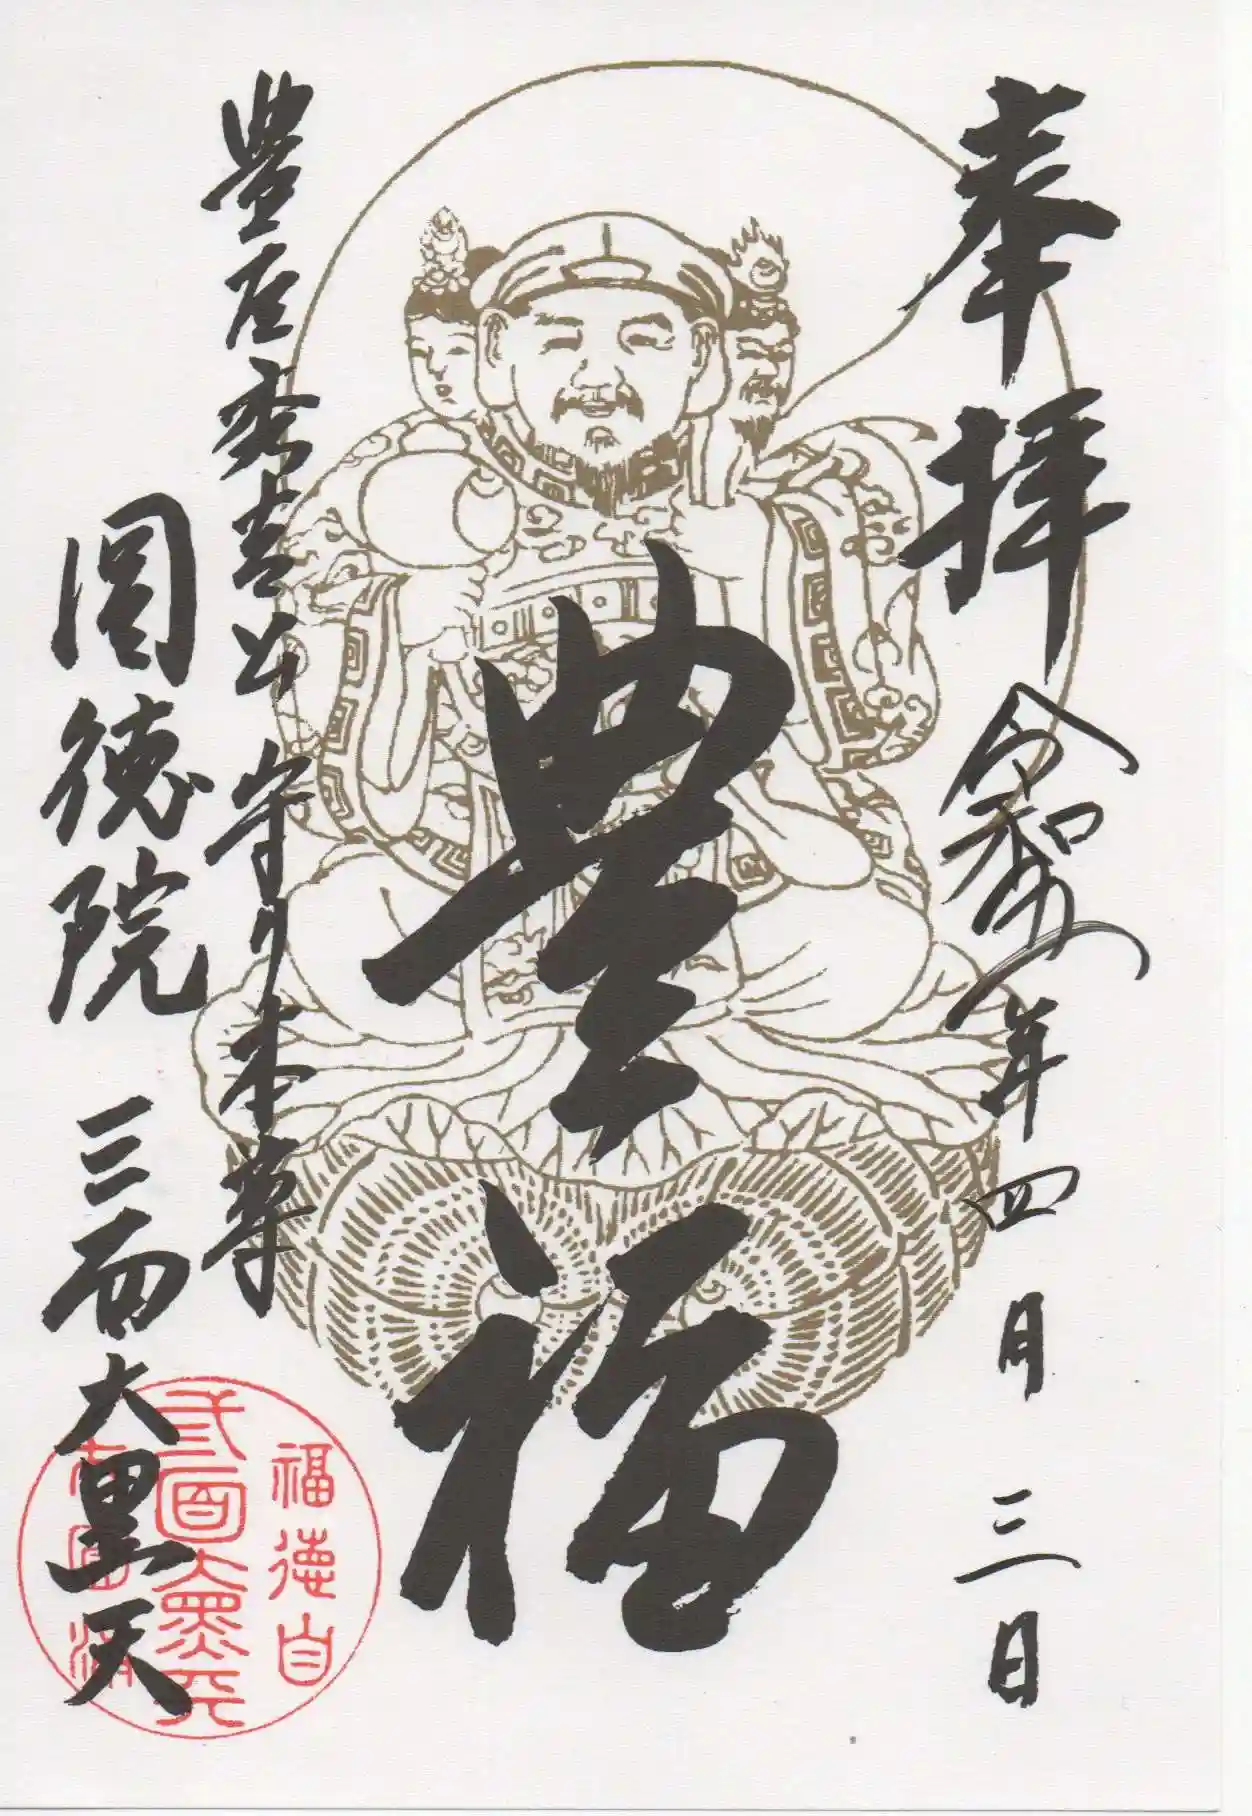 奉拝 令和年四月三日
豊福
豊臣秀吉公守り本尊
圓徳院 三面大黒天
福徳自
弎面大黒天
在圓満